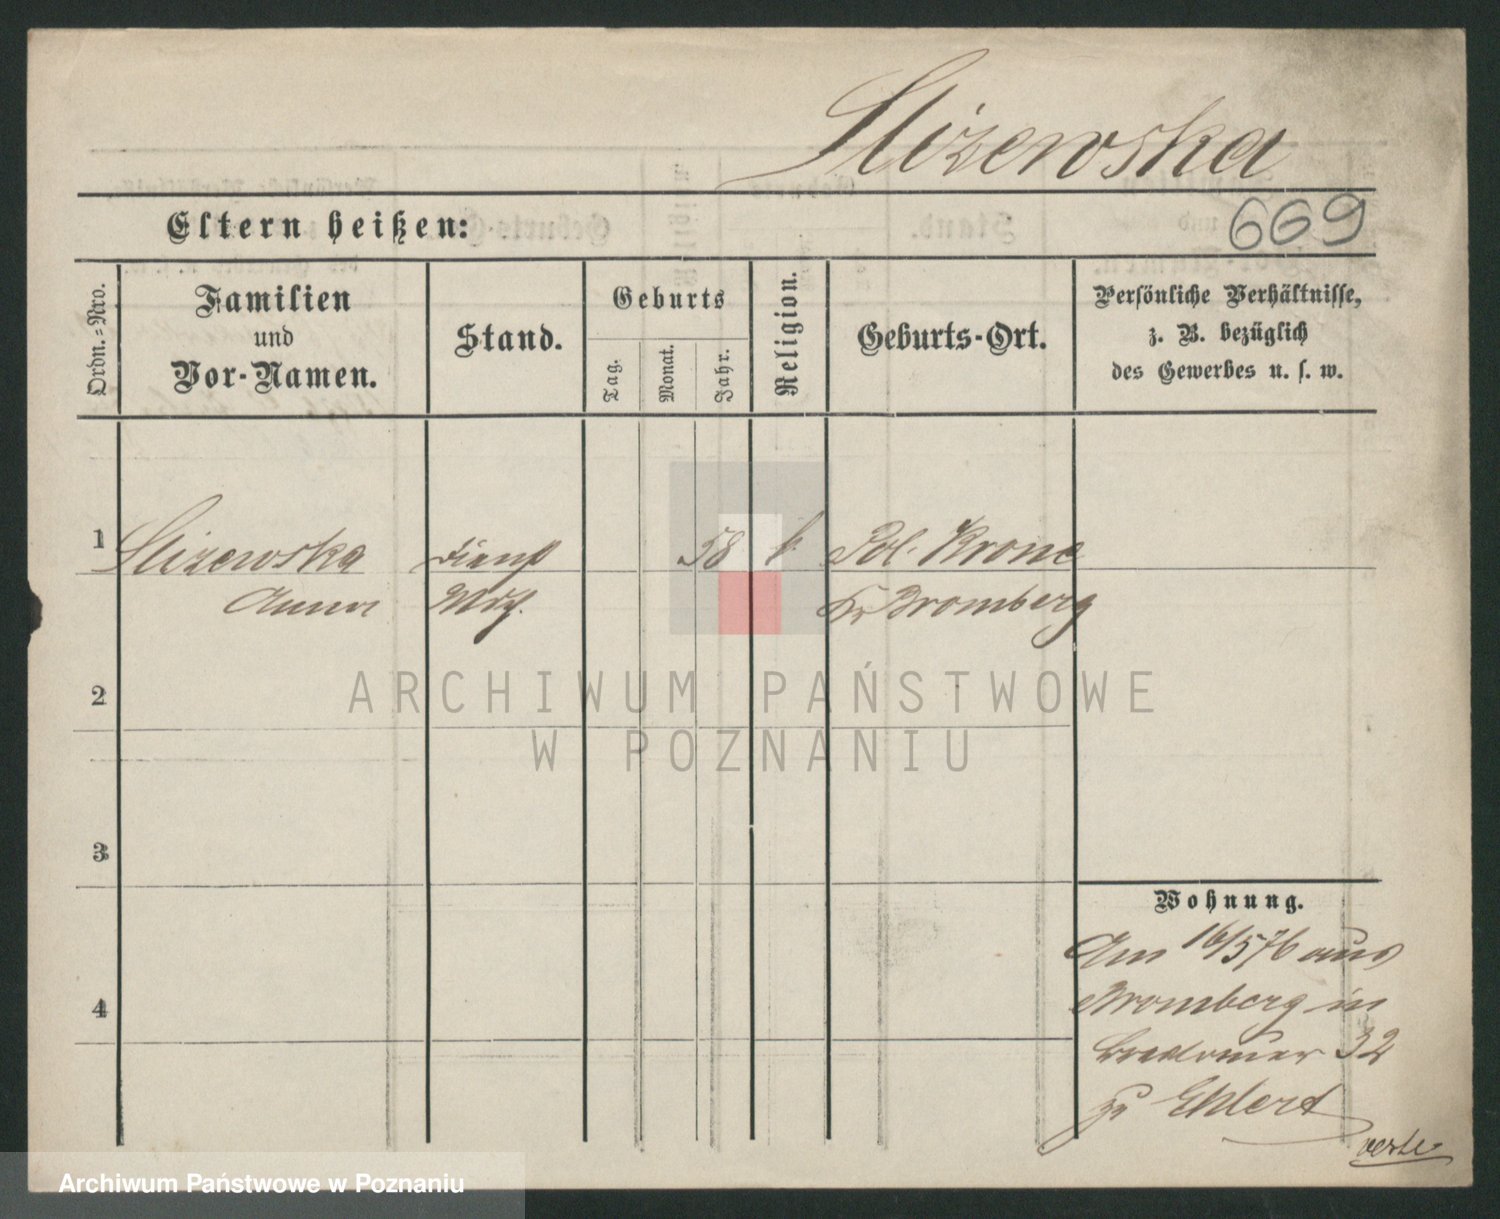 Slizewska
Eltern heißen:
669
Ordn.-Nro.
Familien
und
Vor-Namen.
Stand.
Geburts
Tag.
Monat.
Jahr.
Religion.
Geburts-Ort.
Persönliche Verhältnisse,
z. B. bezüglich
des Gewerbes u. s. w.
1
Slizewska
Anna
Dienst
Mdch.
58
k.
Pol. Krone
Kr Bromberg
2
3
4
Wohnung.
Am 16/5 76 aus
Bromberg in
32
zu Ehlert
verte
ARCHIWUM PAŃSTWOWE
W POZNANIU
Archiwum Państwowe w Poznaniu